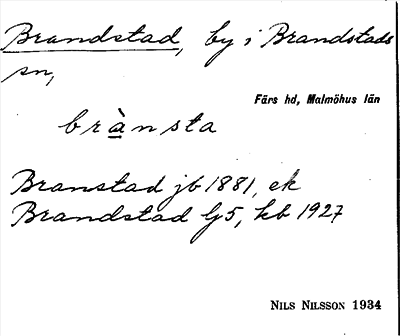 Brandstad, by i Brandstads
sn,
Färs hd, Malmöhus län
brànsta
Branstad jb 1881, ek
Brandstad lj 5, kb 1927
NILS NILSSON 1934